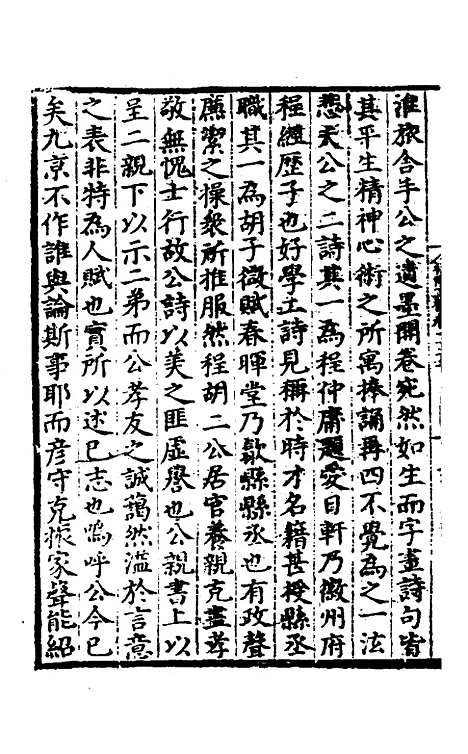 淮旅舎手公之遺墨開卷宛然如生而字畫詩句皆
其平生精神心術之所寓捧誦再四不覺為之一法
愁夫公之二詩其一為程仲庸題愛日軒乃徽州府
程經歷子也好學工詩見稱於時才名籍甚授縣丞
職其一為胡子徵賦春暉堂乃歙縣縣丞也有政聲
廉潔之操衆所推服然程胡二公居官養親克盡孝
敬無愧士行故公詩以美之匪虛譽也公親書上以
呈二親下以示二弟而公孝友之誠藹然溢於言意
之表非特為人賦也實所以述已志也嗚呼公今已
矣九京不作誰與論斯事耶而彦守克振家聲能紹